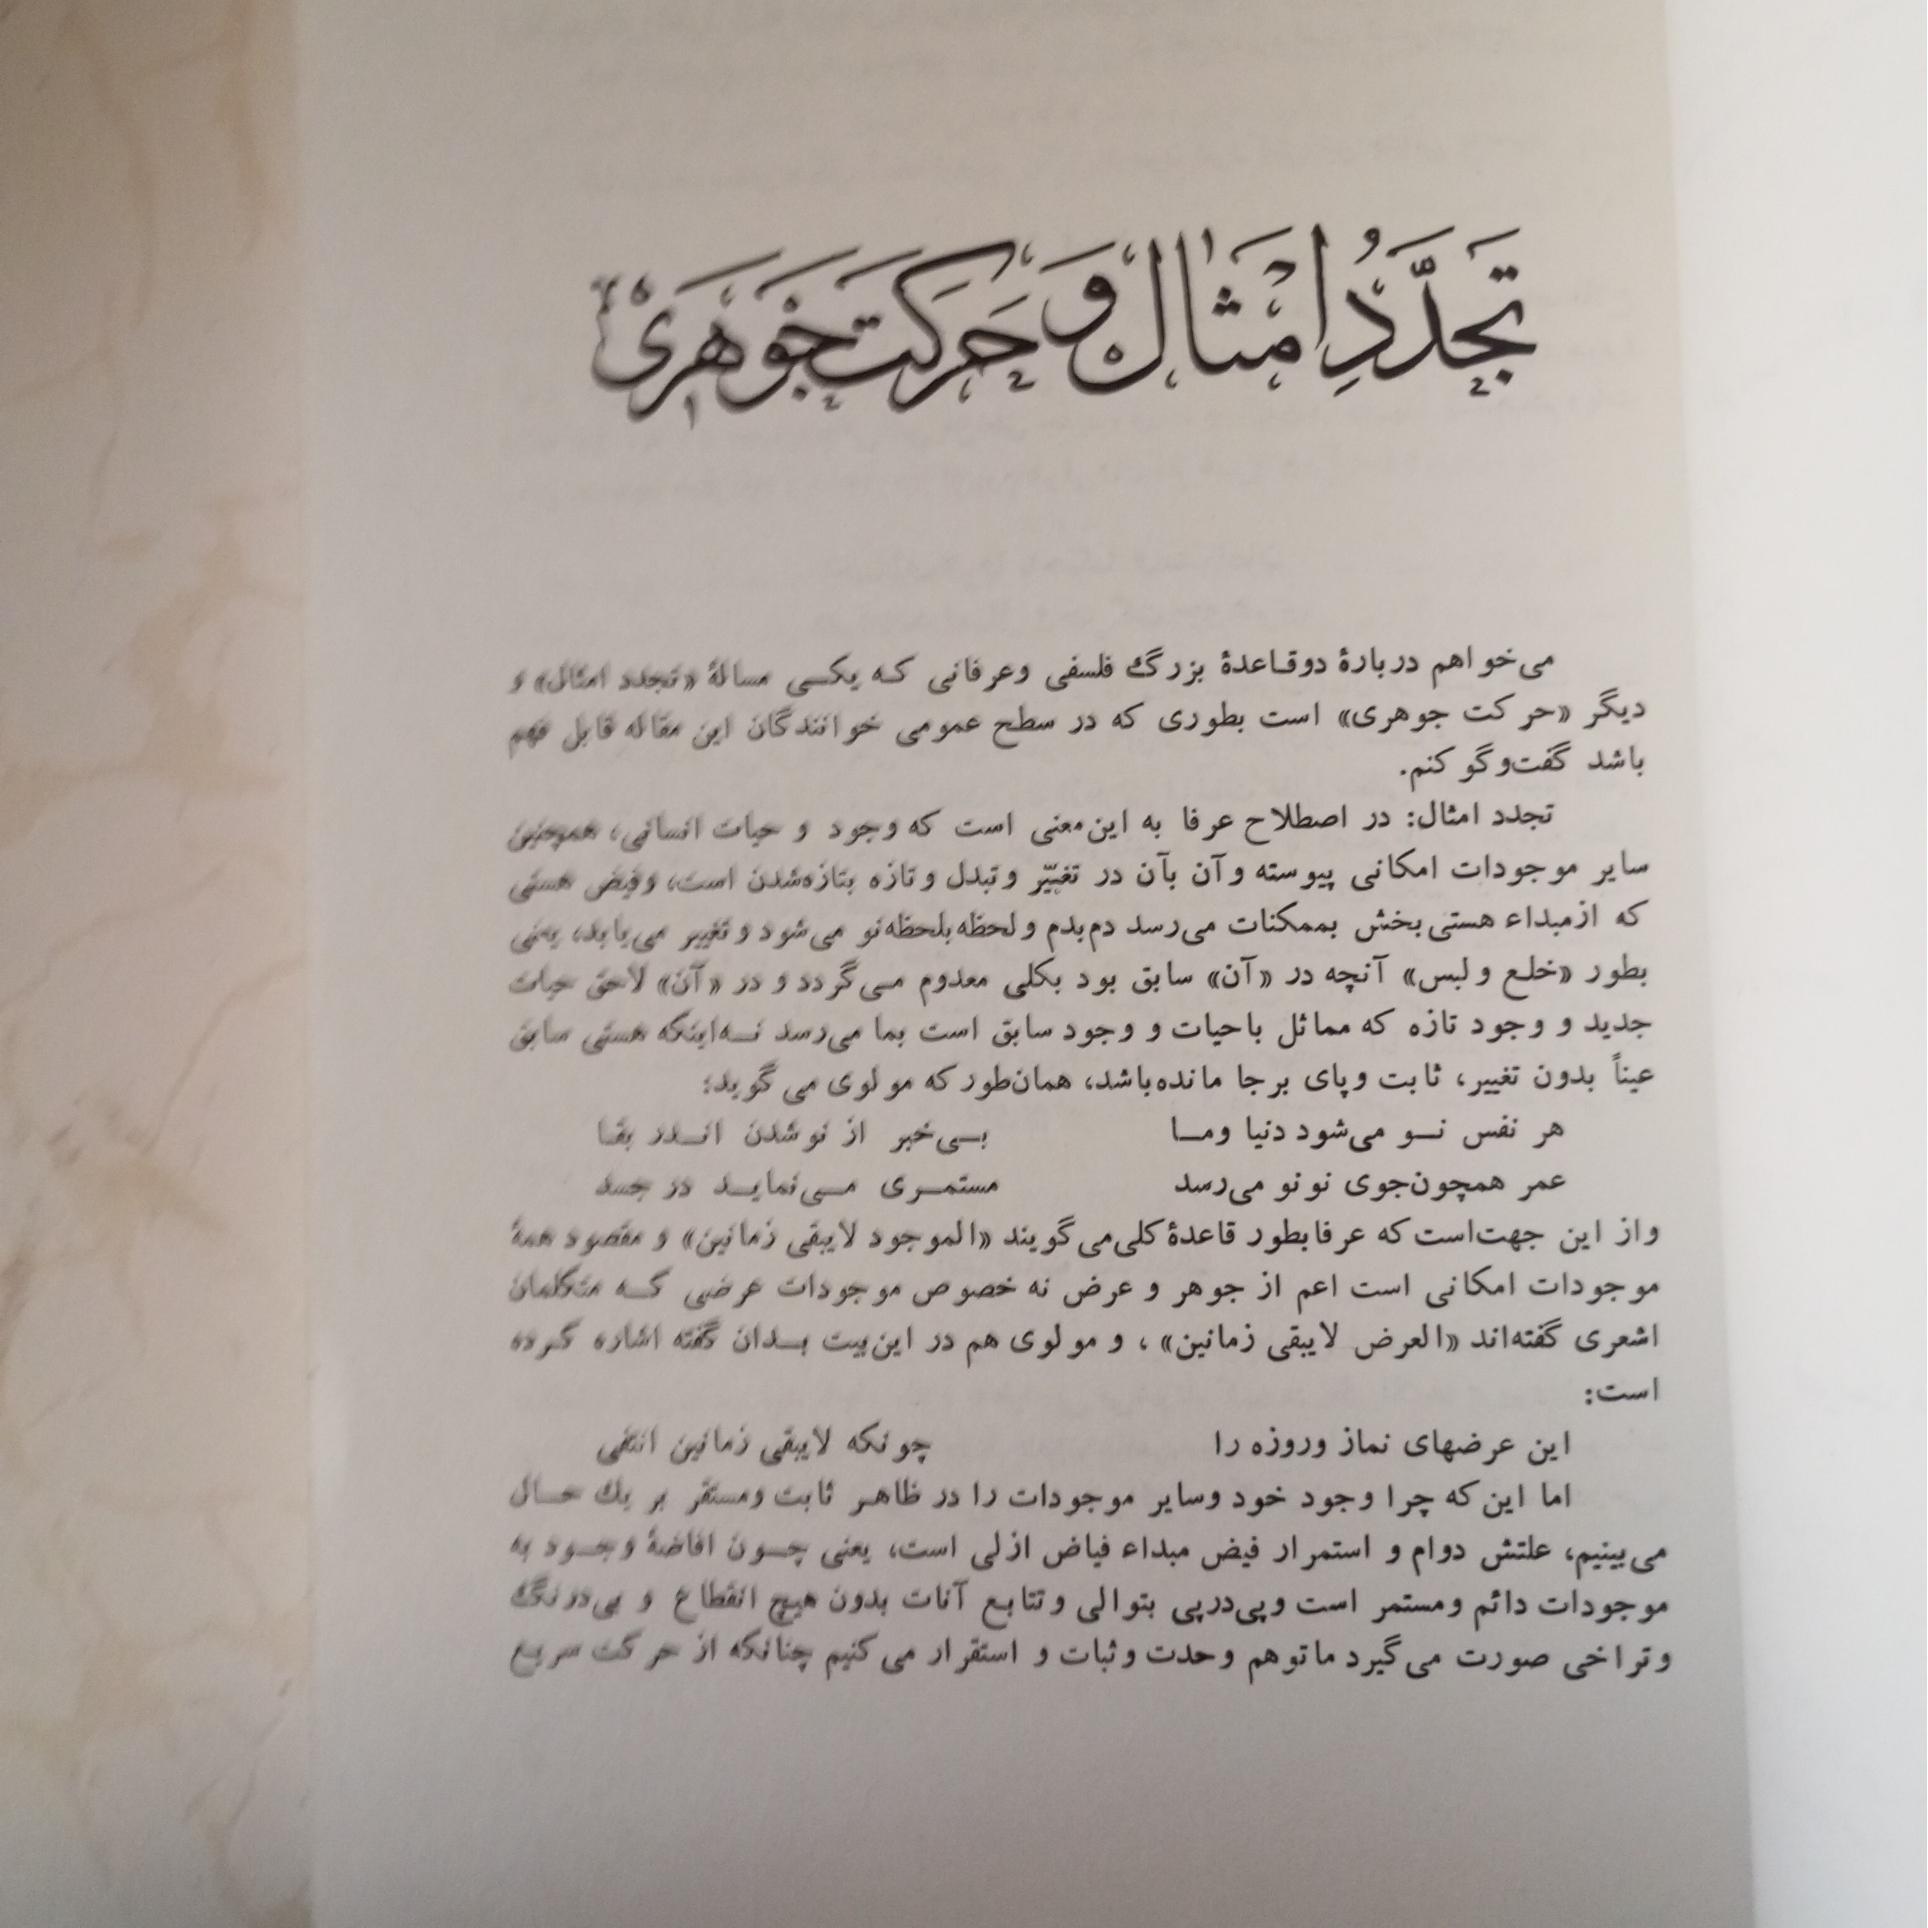 تجدّد امثال و حرکت جوهری
می‌خواهم دربارهٔ دوقاعدهٔ بزرگ فلسفی وعرفانی که یکی مسالهٔ «تجدد امثال» و
دیگر «حرکت جوهری» است بطوری که در سطح عمومی خوانندگان این مقاله قابل فهم
باشد گفت‌وگو کنم.
تجدد امثال: در اصطلاح عرفا به این‌معنی است که وجود و حیات انسانی، همچنین
سایر موجودات امکانی پیوسته وآن بآن در تغیّر وتبدل وتازه بتازه‌شدن است، وفیض هستی
که ازمبداء هستی‌بخش بممکنات می‌رسد دم‌بدم ولحظه‌بلحظه‌نو می‌شود وتغییر می‌یابد، یعنی
بطور «خلع ولبس» آنچه در «آن» سابق بود بکلی معدوم می‌گردد و در «آن» لاحق حیات
جدید و وجود تازه که مماثل باحیات و وجود سابق است بما می‌رسد نه‌اینکه هستی سابق
عیناً بدون تغییر، ثابت وپای برجا مانده‌باشد، همان‌طور که مولوی می‌گوید:
هر نفس نو می‌شود دنیا وما بی‌خبر از نوشدن اندر بقا
عمر همچون‌جوی نونو می‌رسد مستمری می‌نماید در جسد
واز این جهت‌است که عرفابطور قاعدهٔ‌کلی‌می‌گویند «الموجود لایبقی زمانین» و مقصود همهٔ
موجودات امکانی است اعم از جوهر و عرض نه خصوص موجودات عرضی که متکلمان
اشعری گفته‌اند «العرض لایبقی زمانین»، و مولوی هم در این‌بیت بدان گفته اشاره کرده
است:
این عرضهای نماز وروزه را چونکه لایبقی زمانین انتفی
اما این‌که چرا وجود خود وسایر موجودات را در ظاهر ثابت ومستقر بر یك حال
می‌بینیم، علتش دوام و استمرار فیض مبداء فیاض ازلی است، یعنی چون افاضهٔ وجود به
موجودات دائم ومستمر است وپی‌درپی بتوالی وتتابع آنات بدون هیچ انقطاع و بی‌درنگ
وتراخی صورت می‌گیرد ماتوهم وحدت وثبات و استقرار می‌کنیم چنانکه از حرکت سریع